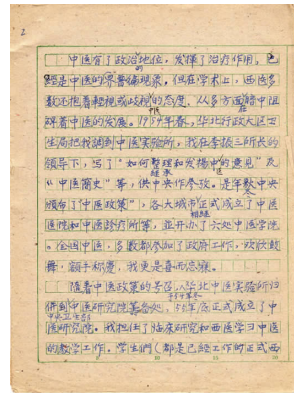 2
中医有了政治地位，发挥了治疗作用，已
经是中医的普遍现象。但在学术上，西医多
数还抱着轻视或歧视的态度，从多方面暗中阻
碍着中医的发展。1954年春，华北行政大区卫
生局把我调到中医实验所，我在李振三所长的
领导下，写了“如何整理和发扬中医的意见”及
继承
《中医简史》等，供中央作参攷。是年秋中央
颁布了“中医政策”，各大城市正式成立了中
相继
医医院和中医诊疗所等，并开办了六处中医学院。
全国中医，多数都参加了政府工作，欢欣鼓
舞，额手称庆，我更是喜而忘寐。
随着中医政策的号召，华北中医实验所归
于54年冬
併到中医研究院筹备处，55年底正式成立了中
中央卫生部
医研究院。我担任了临床研究和西医学习中医
的教学工作。学生们（都是已经工作的正式西